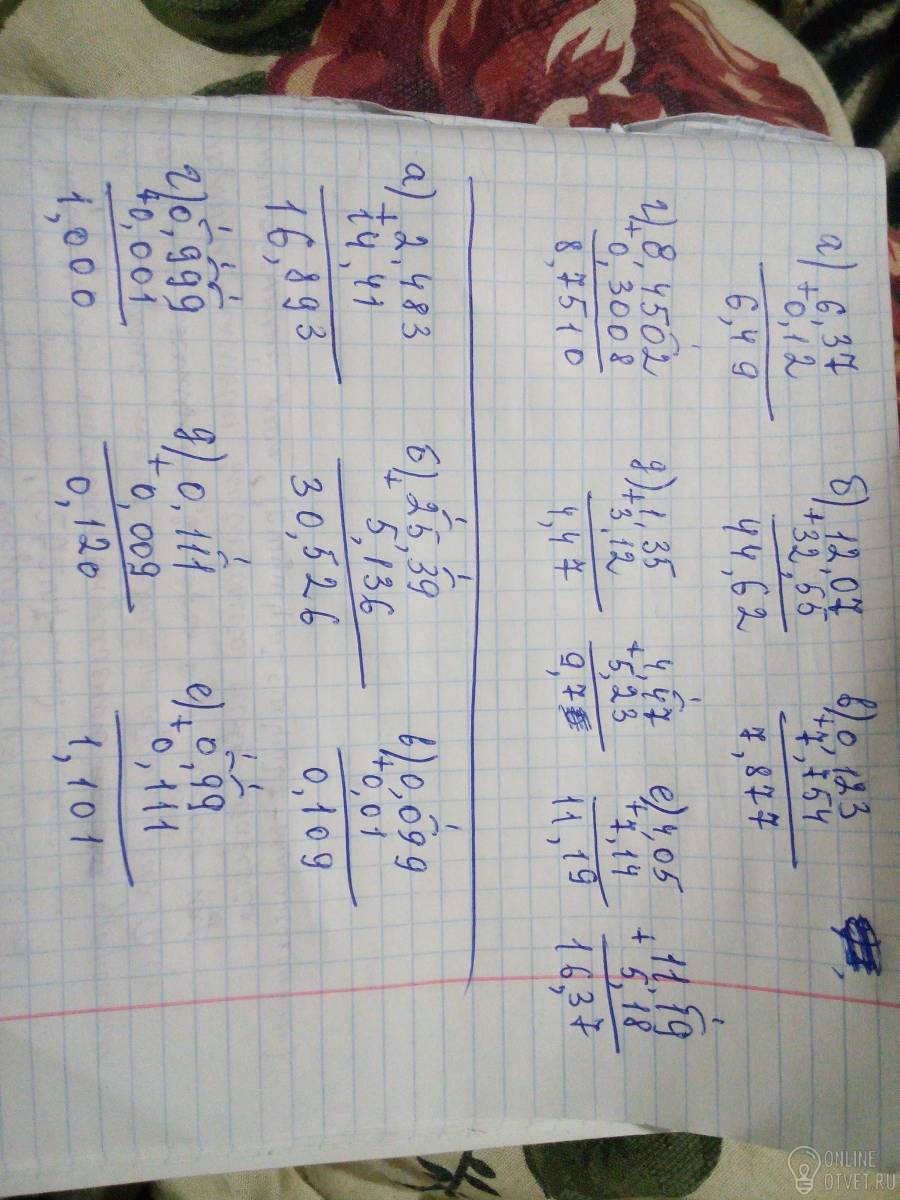 а) 6,37 б) 12,07 в) 0,123
+ 0,12 + 32,55 + 7,754
6,49 44,62 7,877
г) 8,4502 д) 1,35 4,47 е) 4,05 11,19
+ 0,3008 + 3,12 + 5,23 + 7,14 + 5,18
8,7510 4,47 9,7 11,19 16,37
а) 2,483 б) 25,39 в) 0,099
+ 14,41 + 5,136 + 0,01
16,893 30,526 0,109
г) 0,999 д) 0,111 е) 0,99
+ 0,001 + 0,009 + 0,111
1,000 0,120 1,101
ONLINE
OTVET.RU